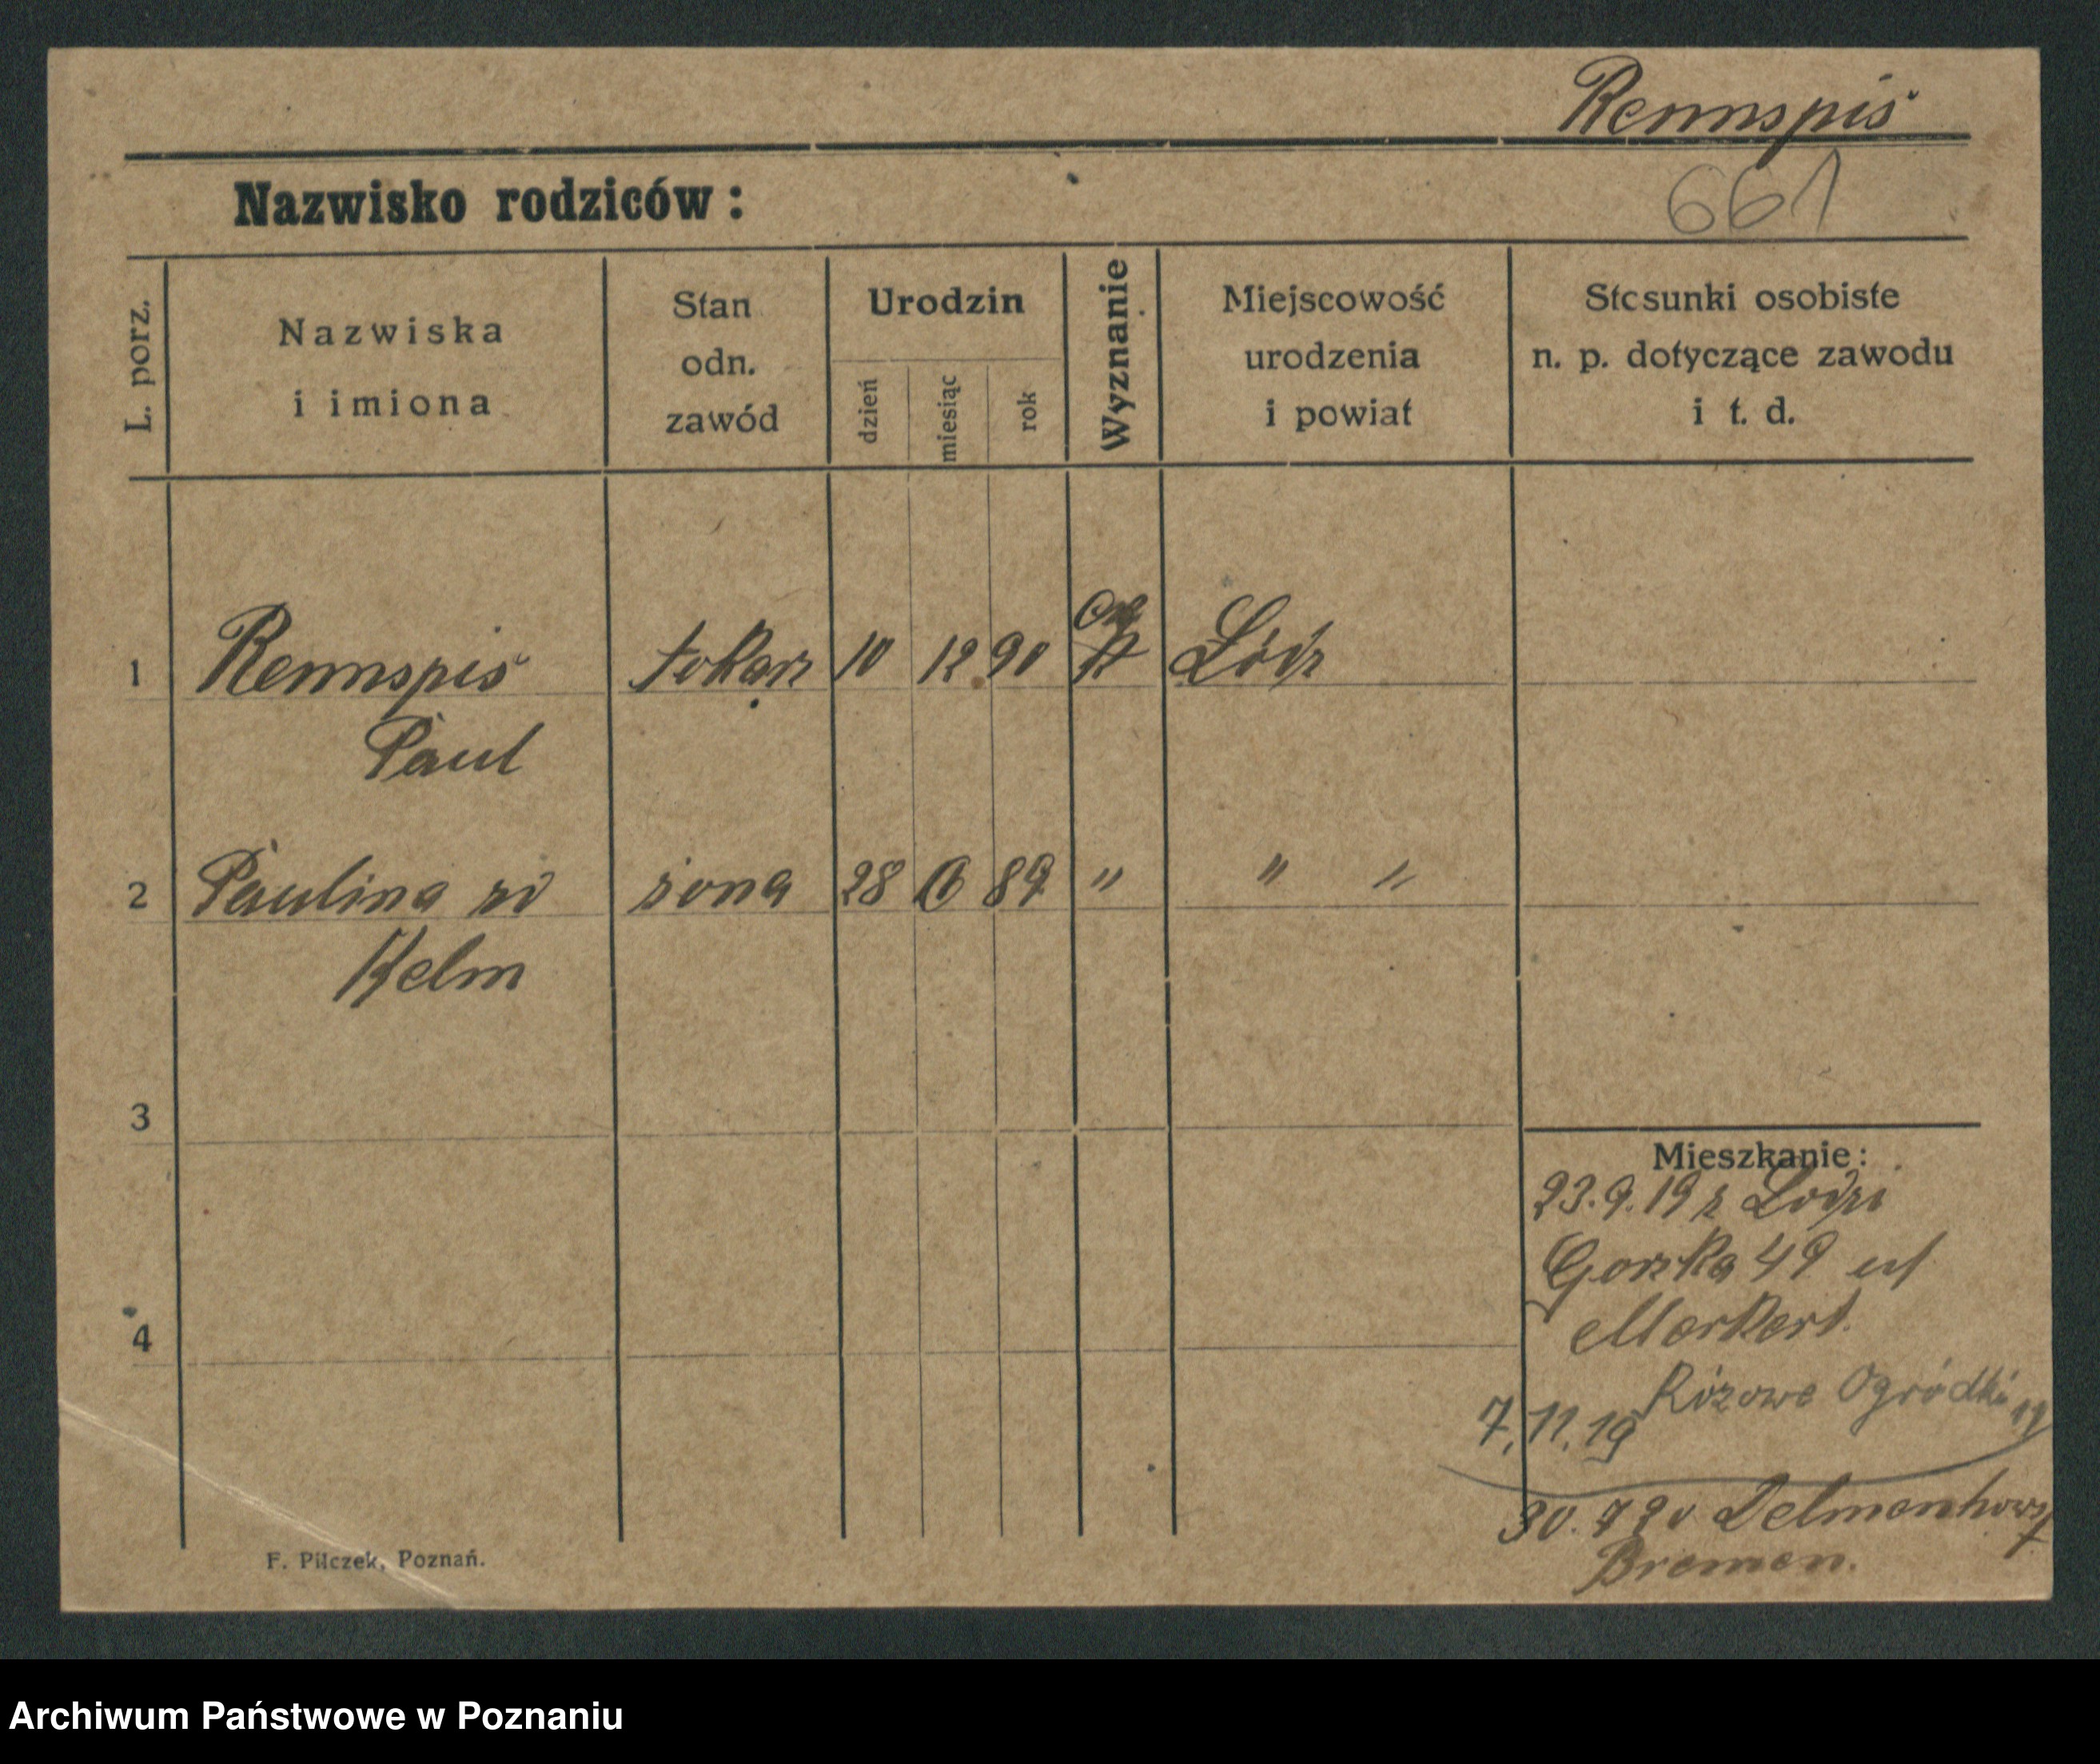 Rennspis
Nazwisko rodziców:
661
L. porz.
Nazwiska
i imiona
Stan
odn.
zawód
Urodzin
dzień
miesiąc
rok
Wyznanie
Miejscowość
urodzenia
i powiat
Stosunki osobiste
n. p. dotyczące zawodu
i t. d.
1 Rennspis tokarz 10 12 90 Łódz
Paul
2 Paulina żona 28 6 89 " " "
Kelm
3
4
Mieszkanie:
23.9.19 z Łodzi
Gorska 49 ul
Markert.
Rózowe Ogródki
7.11.19
30.7 20 Delmenhorst
Bremen.
F. Pilczek, Poznań.
Archiwum Państwowe w Poznaniu